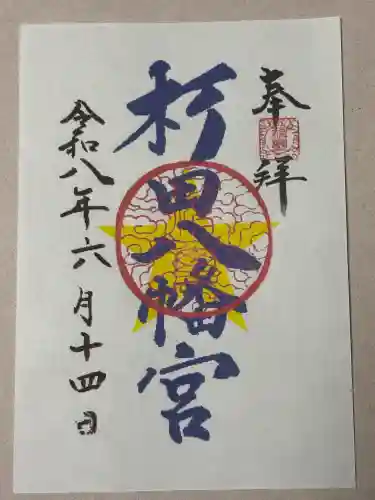 奉拝
杉田八幡宮
令和八年六月十四日